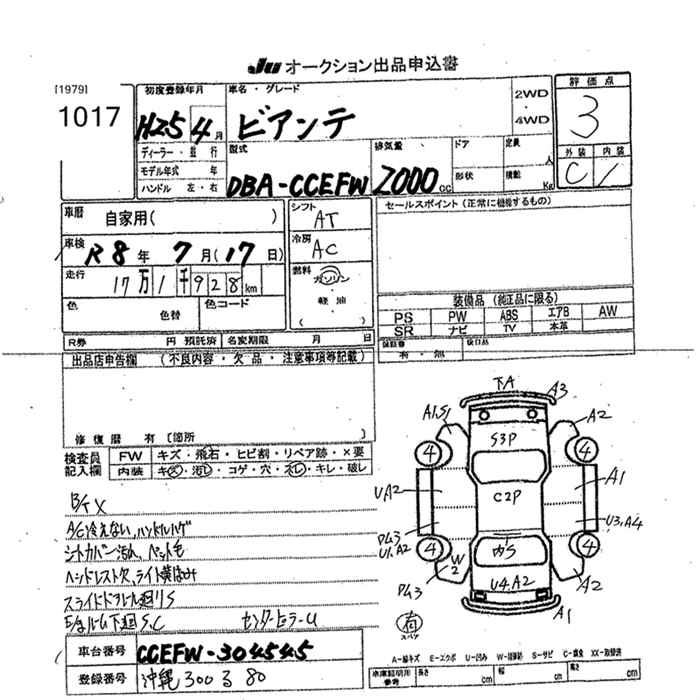 Ju オークション出品申込書
[1979]
1017
初度登録年月
H25 4月
車名・グレード
ビアンテ
2WD
・
4WD
評価点
3
外装 内装
C 1
ディーラー・並行
モデル年式 年
ハンドル 左・右
型式
DBA-CCEFW
排気量
2000cc
ドア
形状
定員
人
積載
Kg
車歴
自家用( )
車検
R8年 7月(17日)
走行
17万1千928km
色
色替
色コード
シフト
AT
冷房
AC
燃料
ガソリン
軽油
( )
セールスポイント (正常に機能するもの)
装備品 (純正品に限る)
PS PW ABS エアB AW
SR ナビ TV 本革
保証書
有・無
R券 円 預託済 名変期限 月 日
出品店申告欄 (不良内容・欠品・注意事項等記載)
修復歴 有 [箇所 ]
検査員
記入欄
FW キズ・飛石・ヒビ割・リペア跡・×要
内装 キズ・汚れ・コゲ・穴・スレ・キレ・破レ
B/T X
A/C冷えない、ハンドルハゲ
シートカバー汚れ、ペット毛
ヘッドレスト欠、ライト黄ばみ
下廻りS
下廻S、C
車台番号
CCEFW-304545
登録番号
沖縄 300 る 80
下A
A3
A1.S1
A2
4
4
S3P
UA2
C2P
A1
U3,A4
U1,A2
4
4
W2
内S
U4.A2
A2
A1
有
スペア
A-線キズ E-エクボ U-凹み W-補修跡 S-サビ C-腐食 XX-取替済
車庫証明用
参考
長さ cm 幅 cm 高さ cm